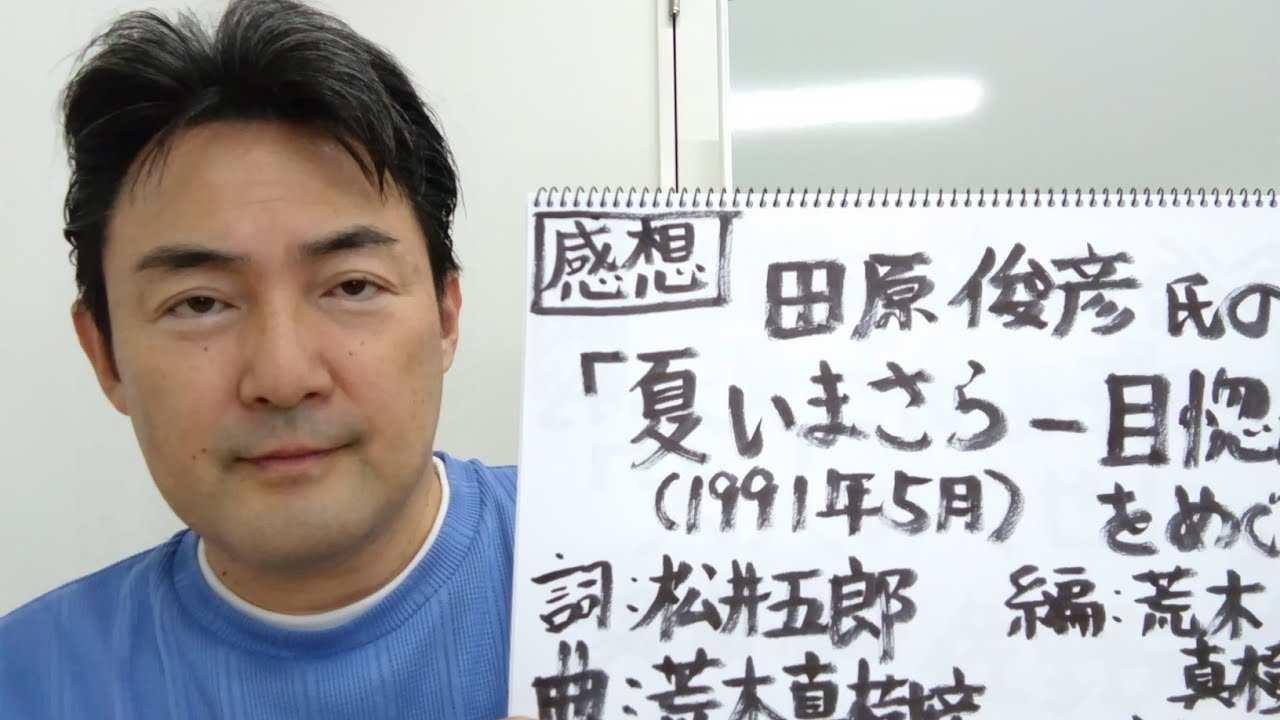 感想 田原俊彦氏の
「夏いまさら一目惚
(1991年5月) をめぐ
詞:松井五郎 編:荒木
曲:荒木真樹 真樹